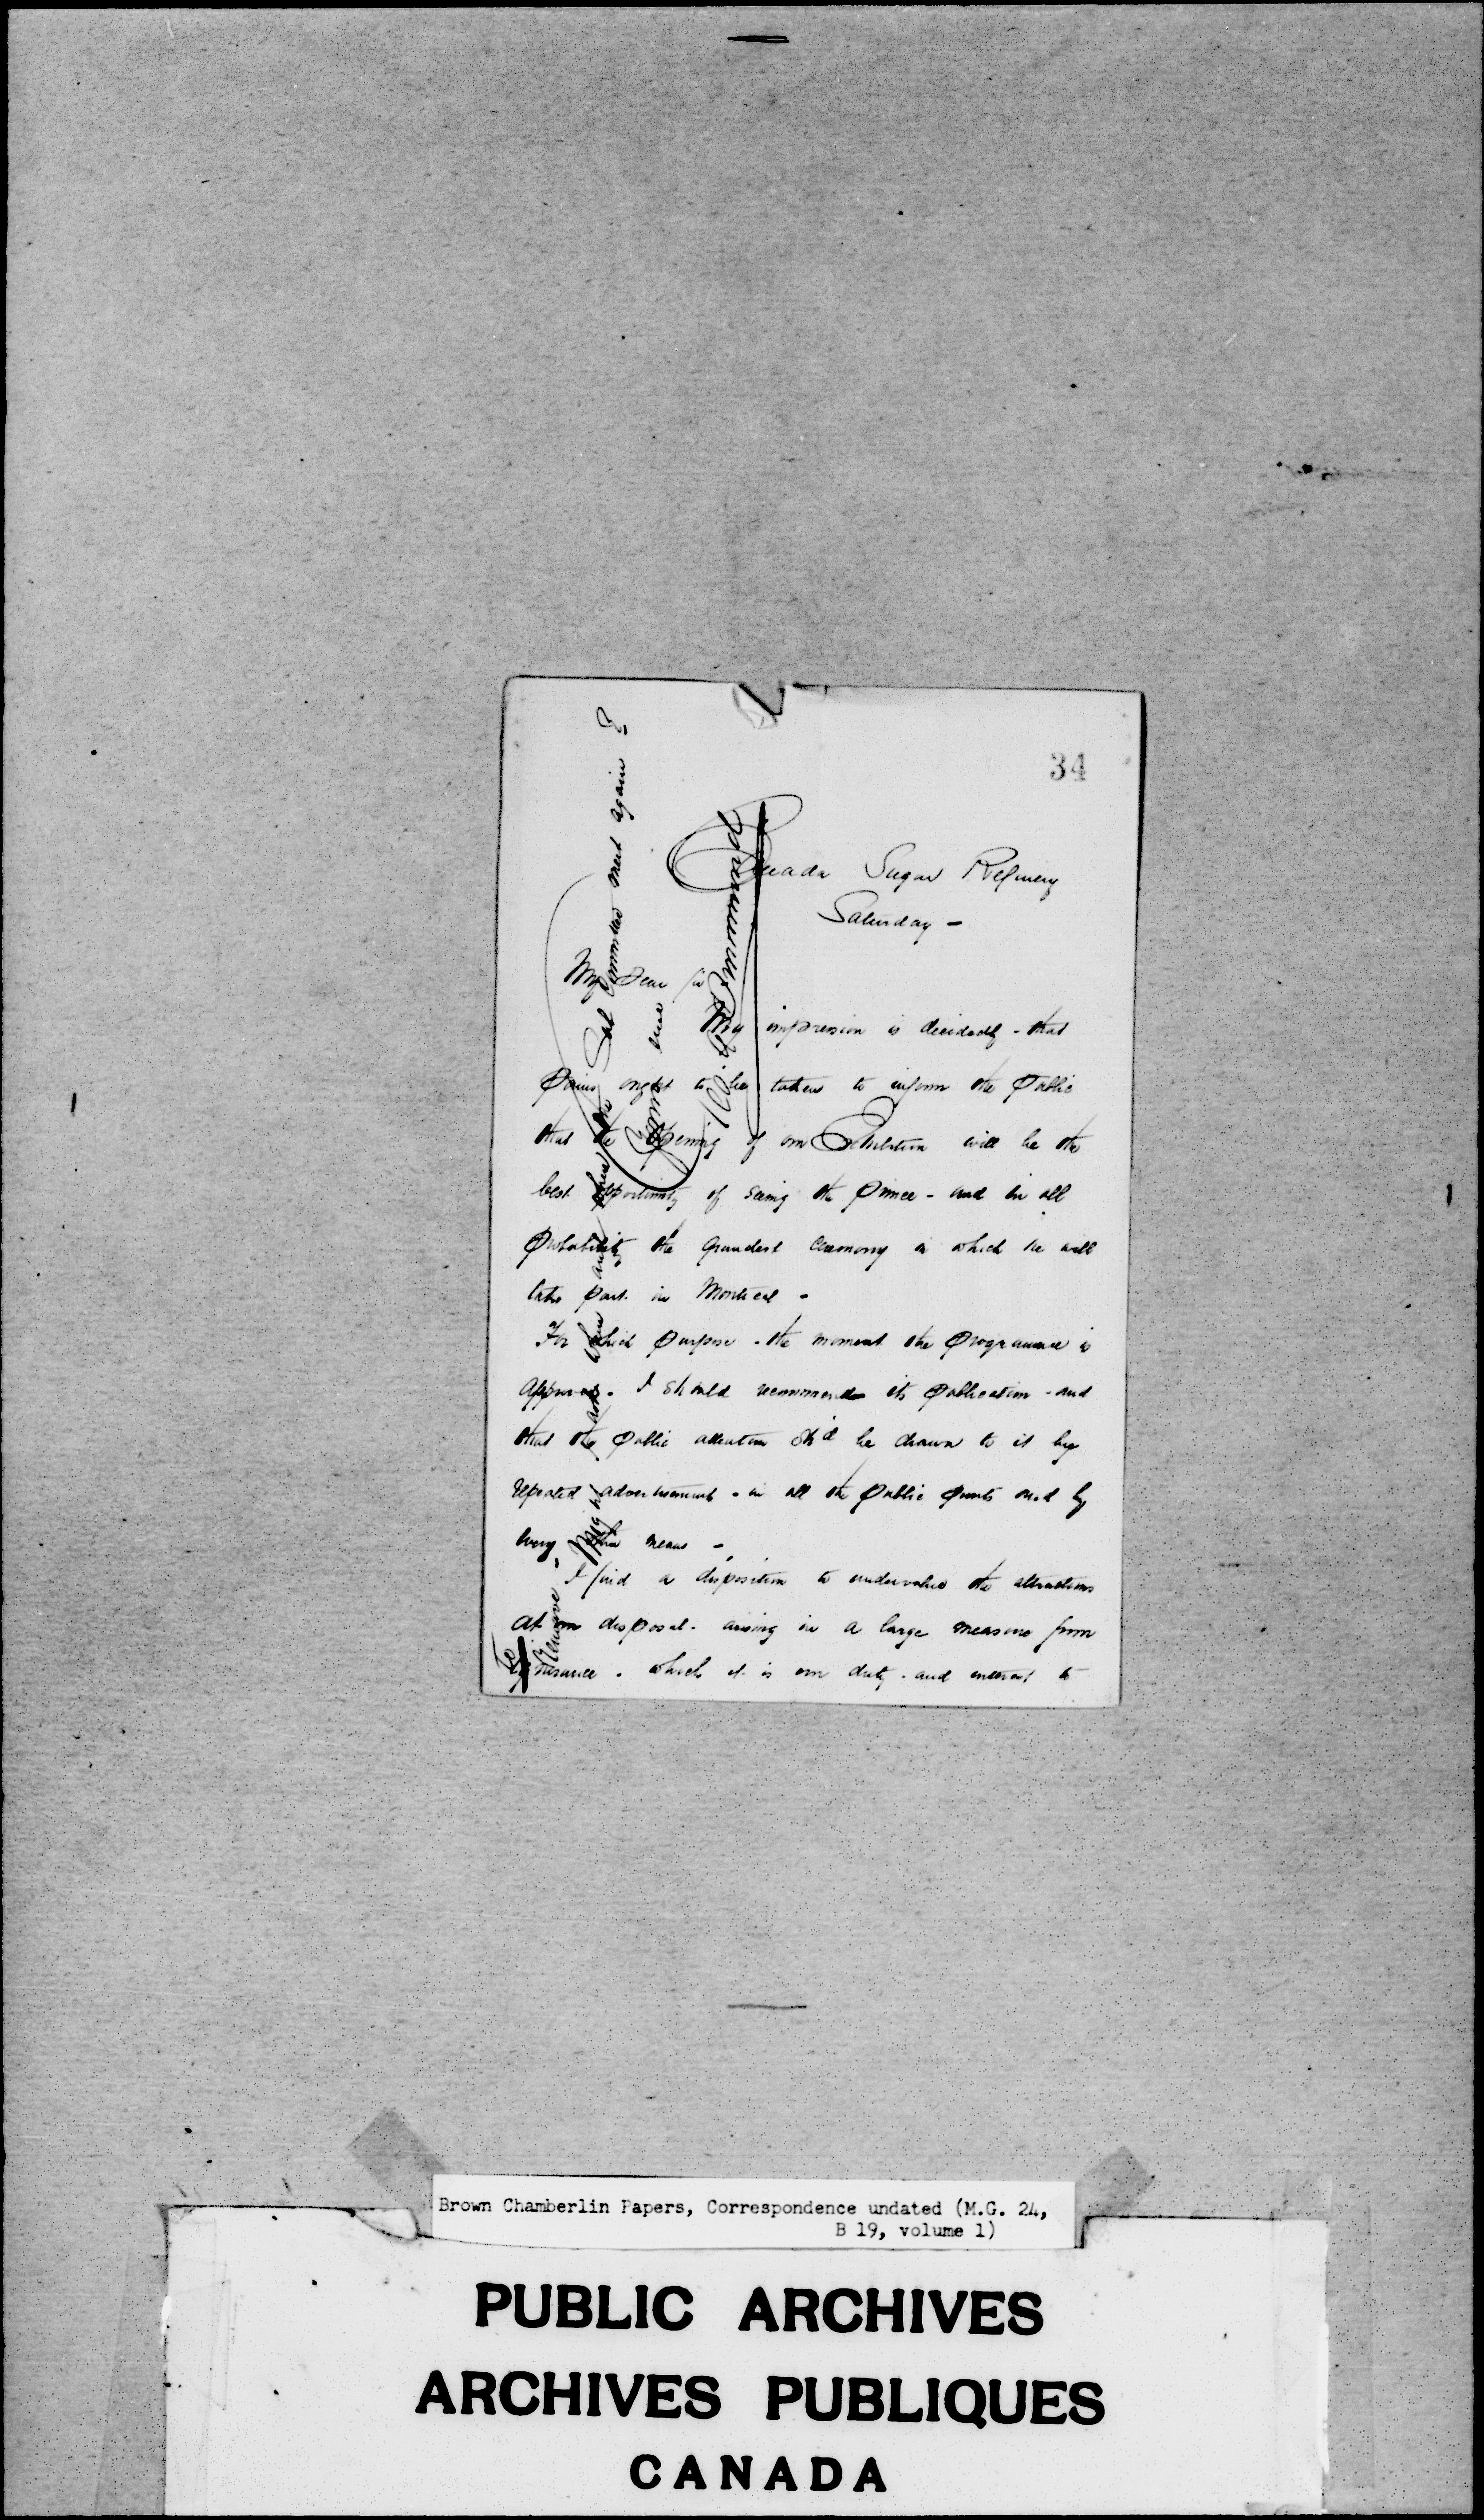 34
Canada Sugar Refinery
Saturday -
My Dear Sir
My impression is decidedly - that
pains ought to be taken to inform the Public
that the opening of our Exhibition will be the
best opportunity of seeing the Prince - and in all
probability the grandest ceremony in which he will
take part in Montreal -
For which purpose - the moment the Programme is
approved - I should recommend its publication - and
that the Public attention shd be drawn to it by
repeated advertisements - in all the Public prints and by
every other means -
I find a disposition to undervalue the attractions
at our disposal - arising in a large measure from
ignorance - which it is our duty - and interest to
remove - May I ask when and where the Sub Committee meet again?
Yours truly
Brown Chamberlin Papers, Correspondence undated (M.G. 24,
B 19, volume 1)
PUBLIC ARCHIVES
ARCHIVES PUBLIQUES
CANADA